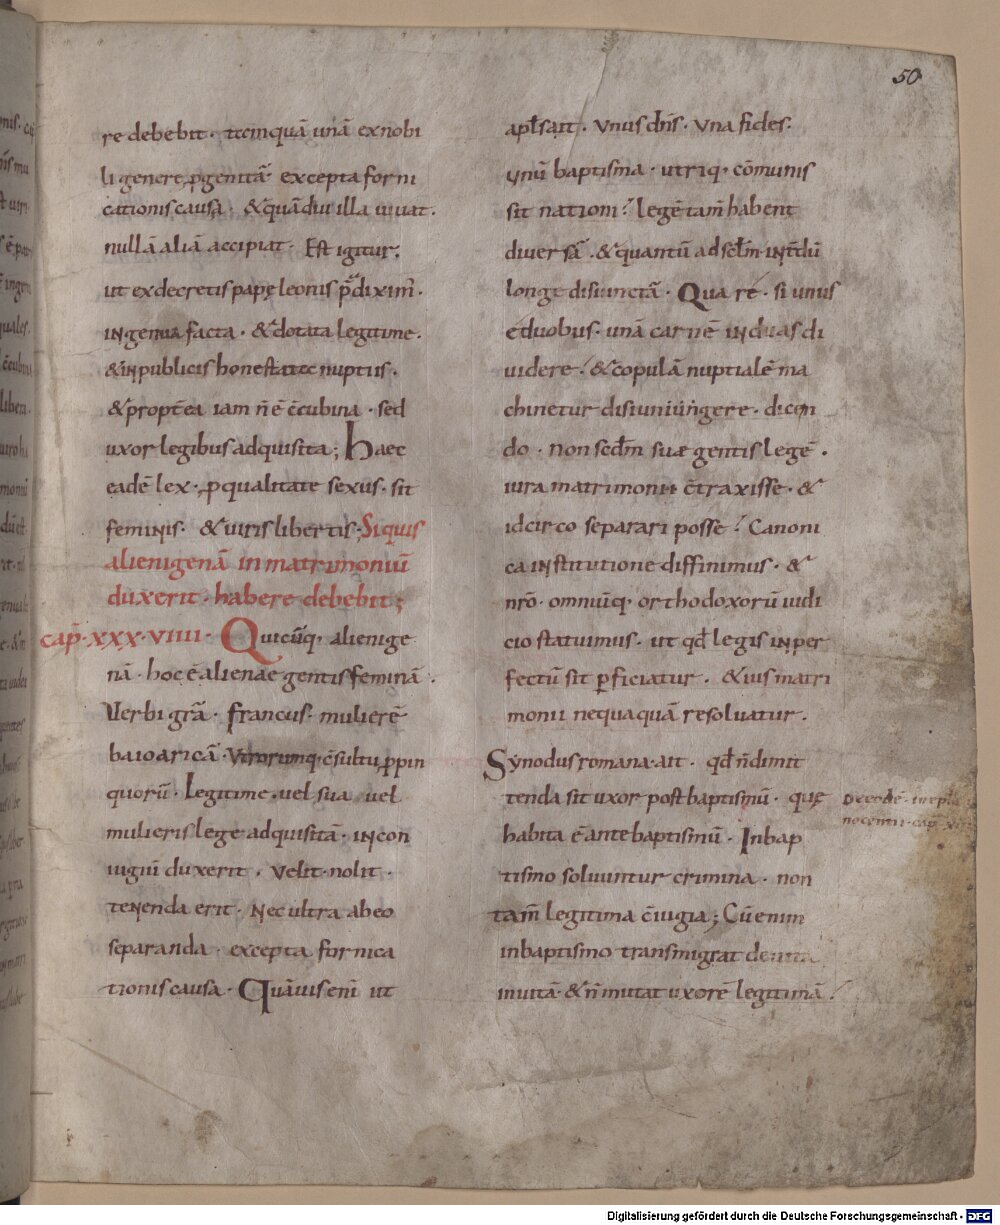 50
re debebit · tamquā unā ex nobi
li genere ꝓgenitā · excepta forni
cationis causa · & quādiu illa uiuat ·
nullā aliā accipiat · Est igitur ·
ut ex decretis papę leonis p̄diximꝰ ·
ingenua facta · & dotata legitime ·
& in publicis honestate nuptiis ·
& propt̄ea iam n̄ ē c̄cubina · sed
uxor legibus adquisita ; Haec
eadē lex · ꝓ qualitate sexus · sit
feminis · & uiris libertis · Si quis
alienigenā in matrimoniū
duxerit · habere debebit ;
cap̄ · xxx · viiii · Quicūq · alienige
nā · hoc ē alienae gentis feminā ·
Verbi grā · francus · mulierē
baioaricā · Utrorumq · c̄sultu ꝓpin
quorū · Legitime · uel sua uel
mulieris lege adquisitā · in con
iugiū duxerit · Velit · nolit ·
tenenda erit · Nec ultra ab eo
separanda · excepta fornica
tionis causa · Quāuis enī ut
apl̄s ait · Unus dn̄s · Una fides ·
unū baptisma · utriq · cōmunis
sit nationi · legē tam̄ habent
diuersā · & quantū ad sc̄lm int̄dū
longe disiunctā · Qua re · si unus
e duobus · unā carnē in duas di
uidere · & copulā nuptialē ma
chinetur disiungere · dicen
do · non sec̄dm suæ gentis legē ·
iura matrimonii c̄traxisse · &
idcirco separari posse · Canoni
ca institutione diffinimus · &
nrō · omniūq · orthodoxorū iudi
cio statuimus · ut qd̄ legis inper
fectū sit ꝑficiatur · & ius matri
monii nequaquā resoluatur ·
Synodus romana · ait · qd̄ n̄ dimit
tenda sit uxor post baptismū · quę
habita ē ante baptismū · In bap
tismo soluuntur crimina · non
tam̄ legitima c̄iugia ; Cū enim
in baptismo transmigrat de uita
in uitā · & n̄ mutat uxorē legitimā ·
Digitalisierung gefördert durch die Deutsche Forschungsgemeinschaft - DFG